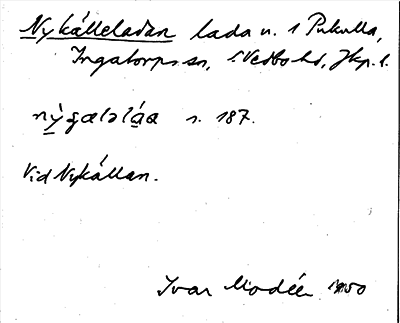 Nykälleladan lada u. 1 Pukulla,
Ingatorps sn, S. Vedbo hd, Jkp. l.
s. 187.
Vid Nykällan.
Ivar Modéer 1950